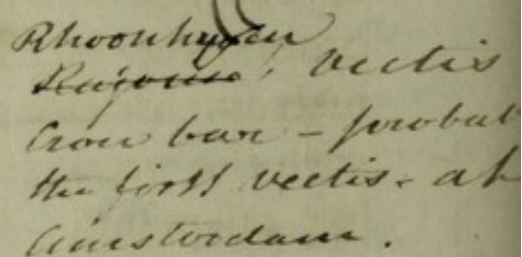 Rhoonhuysen
vectis
Crow bar - probab
the first vectis - at
Amsterdam.